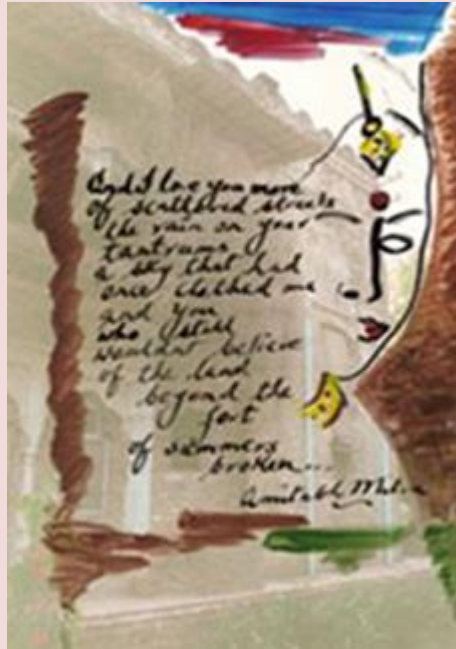 And I love you more
of scattered streets
the rain on your
tantrums
a sky that had
once clothed me
and you
who still
wouldnt believe
of the land
beyond the
fort
of summers
broken...
Amitabh